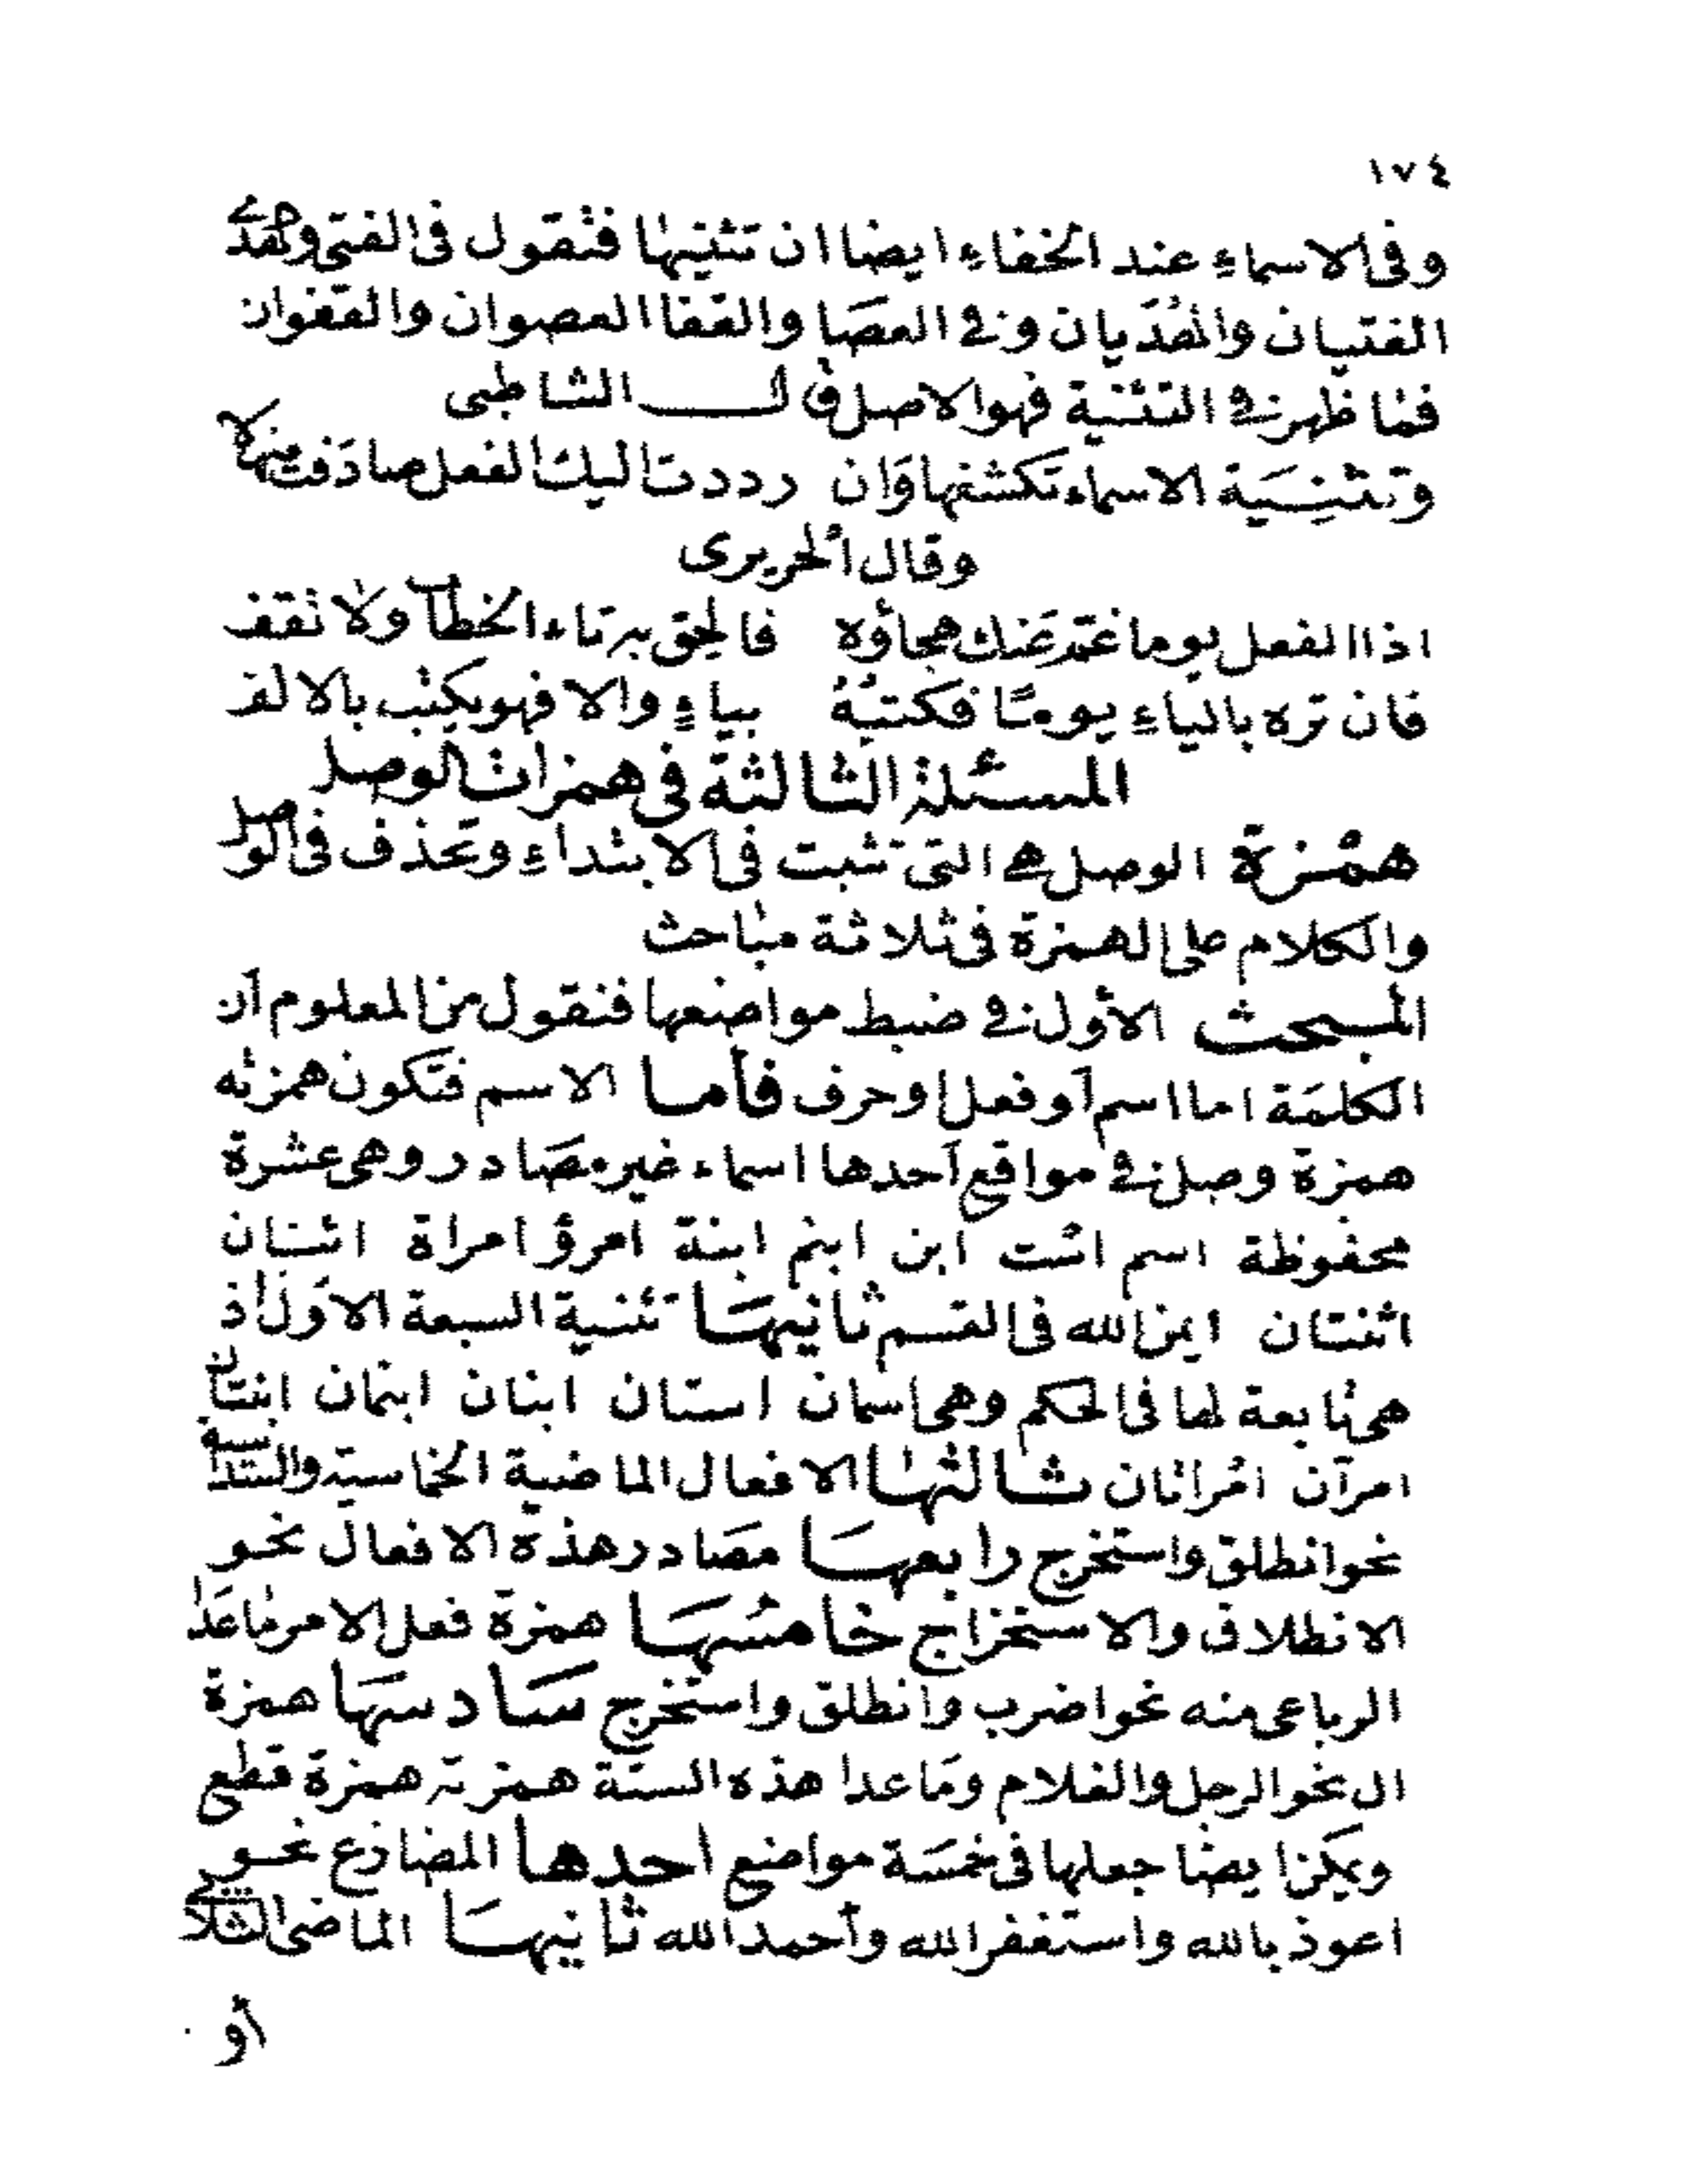 ١٧٤
وفى الاسماء عند الخفاء ايضا ان تثنيها فنقول فى الفتى وهدى
الفتيان والهديان وفى العصا والقفا العصوان والقفوان
فما ظهر فى التثنية فهو الاصل قال الشاطبى
وتثنية الاسماء تكشفها وان رددت اليك الفعل صادفت منهلا
وقال الحريرى
اذا الفعل يوما غم عنك هجاؤه فالحق به تاء الخطاب ولا تقف
فان تره بالياء يوما فكتبه بياء والا فهو يكتب بالالف
المسئلة الثالثة فى همزات الوصل
همزة الوصل هى التى تثبت فى الابتداء وتحذف فى الوصل
والكلام على الهمزة فى ثلاثة مباحث
المبحث الأول فى ضبط مواضعها فنقول من المعلوم أن
الكلمة اما اسم أو فعل أو حرف فأما الاسم فتكون همزته
همزة وصل فى مواقع أحدها اسماء غير مصادر وهى عشرة
محفوظة اسم است ابن ابنم ابنة امرؤ امراة اثنان
اثنتان ايمن الله فى القسم ثانيها تثنية السبعة الاول اذ
هى تابعة لها فى الحكم وهى اسمان استان ابنان ابنمان ابنتان
امرآن امرأتان ثالثها الافعال الماضية الخماسية والسداسية
نحو انطلق واستخرج رابعها مصادر هذه الافعال نحو
الانطلاق والاستخراج خامسها همزة فعل الامر ما عدا
الرباعى منه نحو اضرب وانطلق واستخرج سادسها همزة
ال نحو الرجل والغلام وما عدا هذه الستة همزته همزة قطع
ويمكن ايضا جعلها فى خمسة مواضع احدها المضارع نحو
اعوذ بالله واستغفر الله وأحمد الله ثانيها الماضى الثلاثى
أو